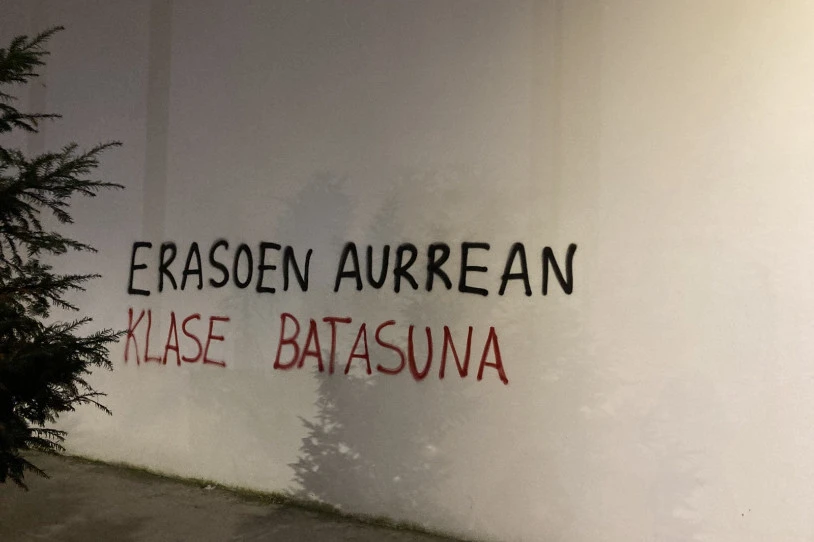 ERASOEN AURREAN
KLASE BATASUNA